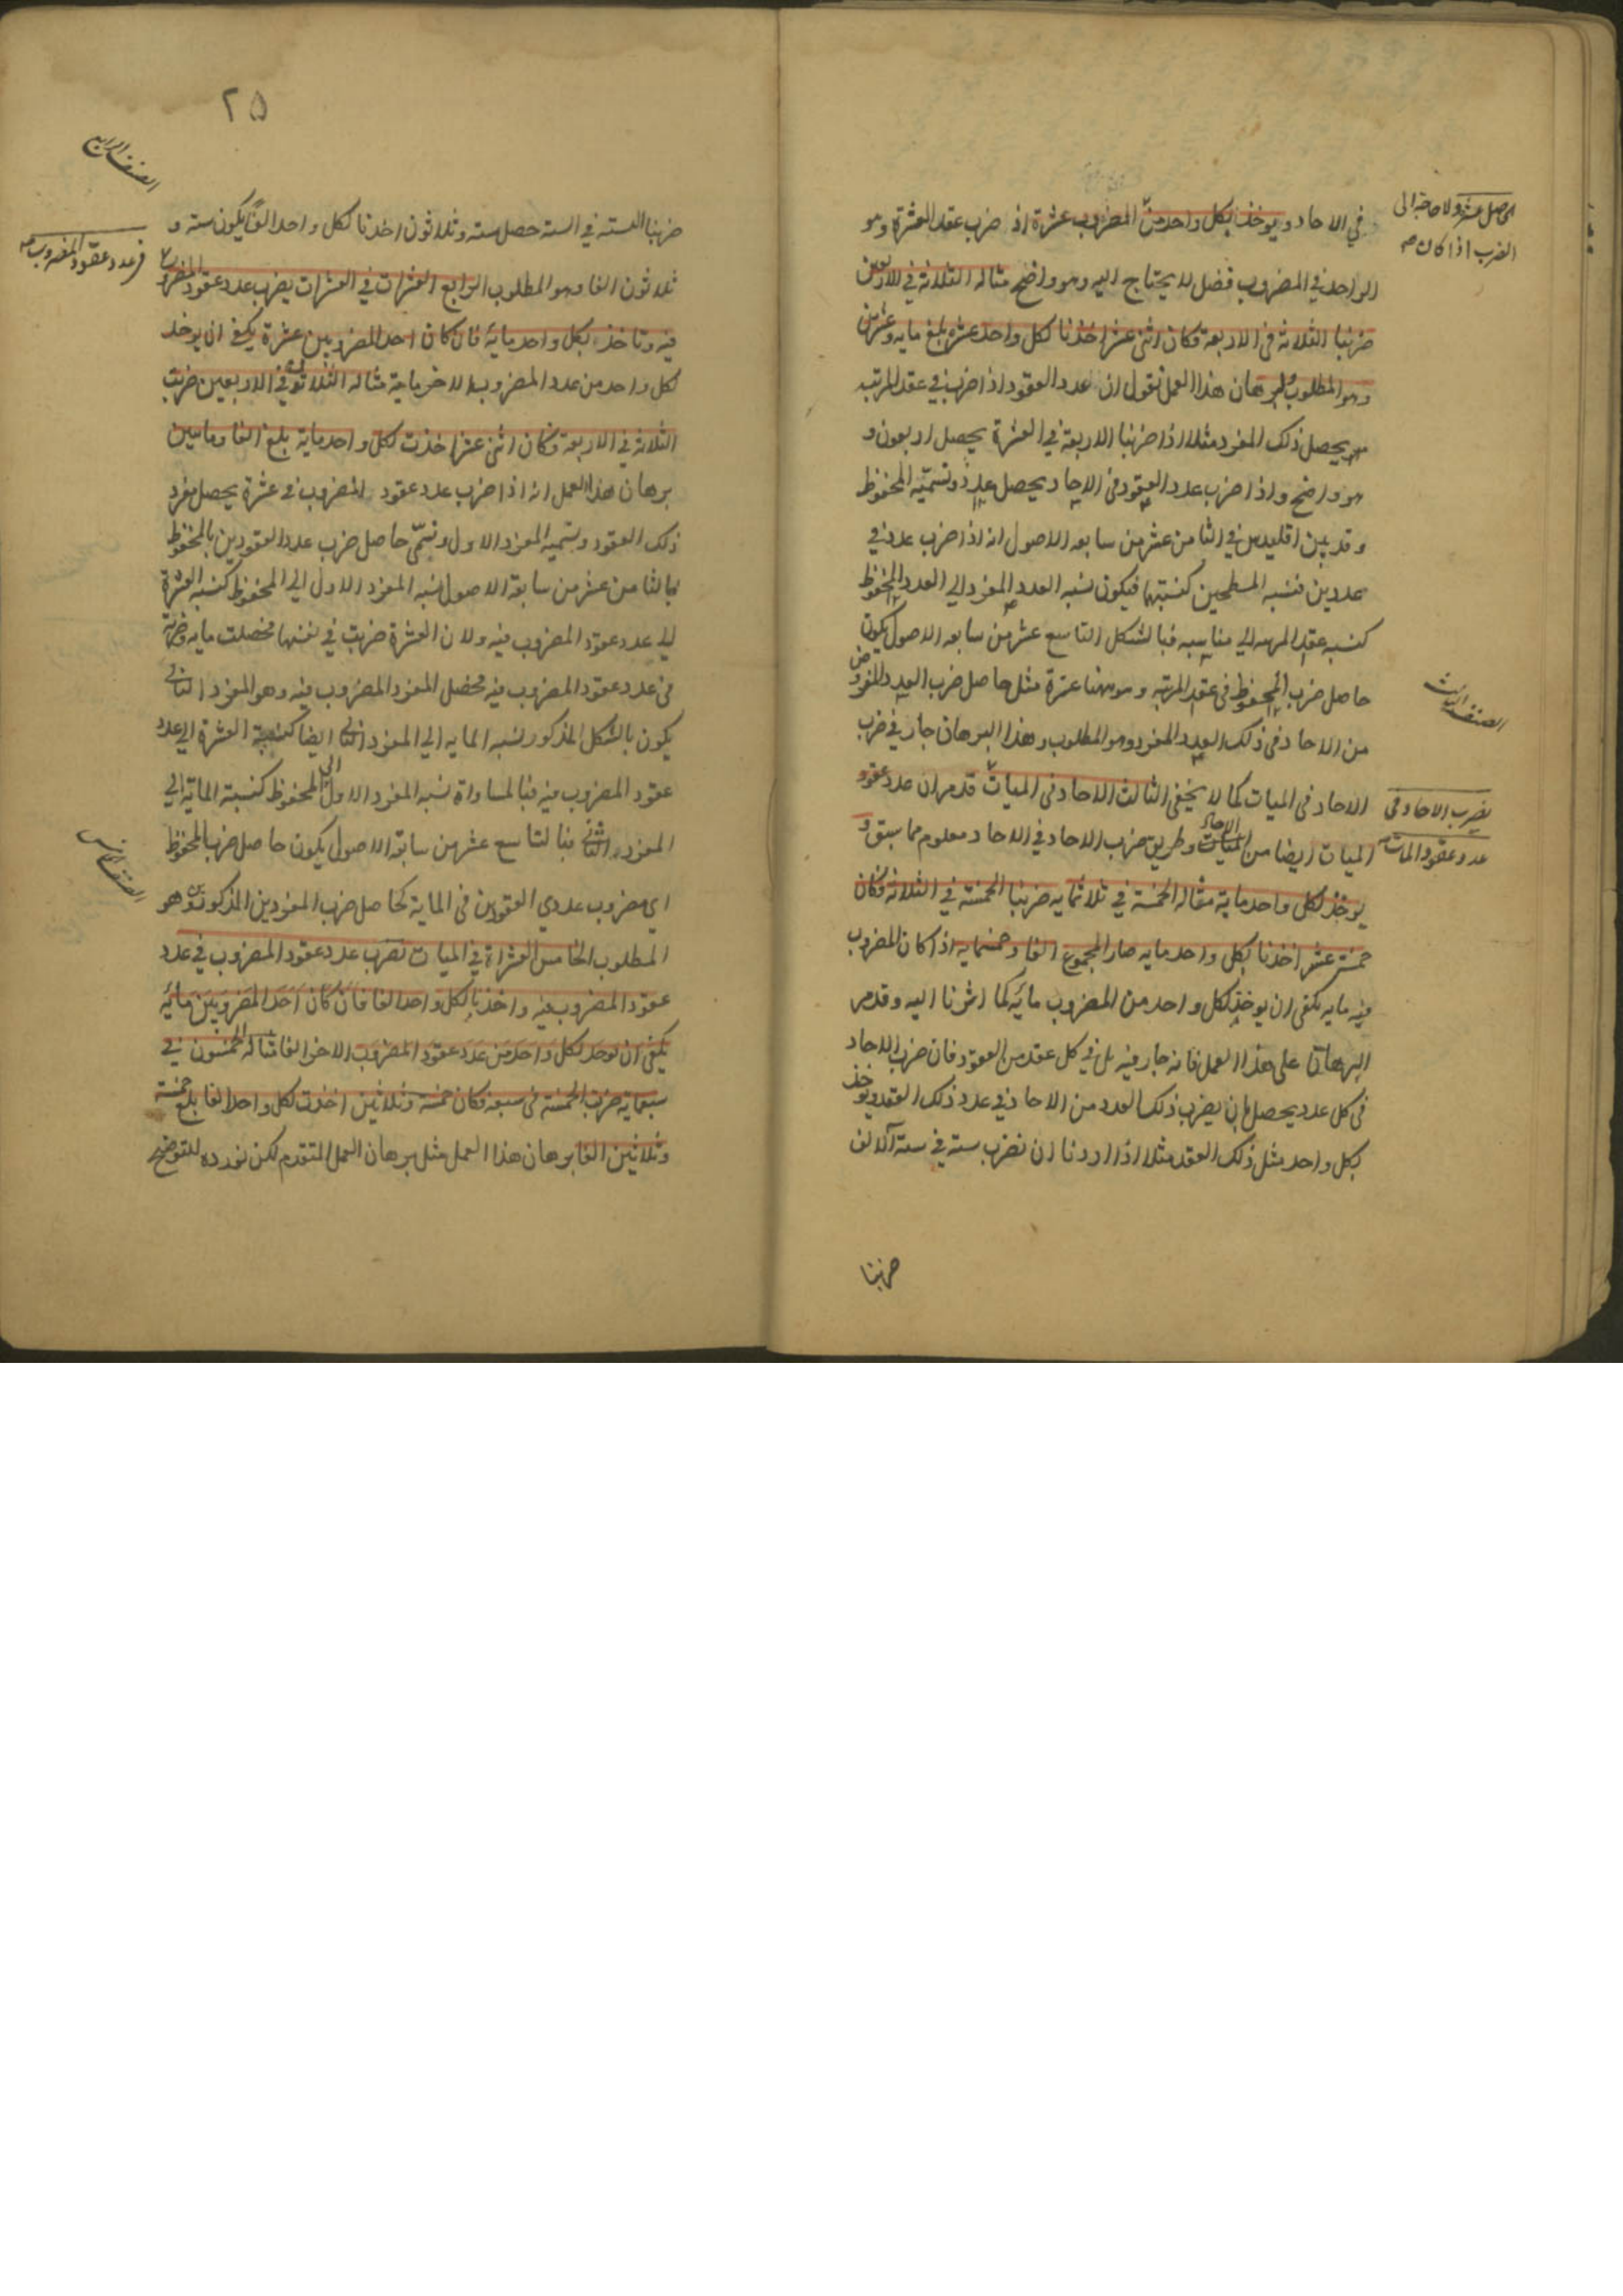 في الاحاد ويوخذ بكل واحد من المضروب عشرة اذ ضرب عقد العشرة وهو
الحاصل عشرة ولا حاجة الى
الضرب اذا كان
الواحد في المضروب فضل لا يحتاج اليه وهو واضح مثاله الثلاثة في الاربعين
ضربنا الثلاثة في الاربعة فكان اثنى عشر اخذنا لكل واحد عشرة بلغ مايه وعشرين
وهو المطلوب برهان هذا العمل نقول ان عدد العقود اذا ضرب في عقد المرتبه
يحصل ذلك المفرد مثلا اذا ضربنا الاربعة في العشرة يحصل اربعون و
هو واضح واذا ضرب عدد العقود في الاحاد يحصل عدد ونسميه المحفوظ
وقد بين اقليدس في الثامن عشر من سابعه الاصول انه اذا ضرب عدد في
عددين فنسبه المسطحين كنسبتهما فيكون نسبه العدد المفرد الي العدد المحفوظ
كنسبه عقد المرتبه الي مناسبه فبالشكل التاسع عشر من سابعه الاصول يكون
حاصل ضرب المحفوظ في عقد المرتبه وهو ههنا عشرة مثل حاصل ضرب العدد المفروض
الصنف الثالث
من الاحاد في ذلك العدد المفرد وهو المطلوب وهذا البرهان جار في ضرب
الاحاد في الميات كما لا يخفى الثالث الاحاد في الميات قد مر ان عدد عقود
نضرب الاحاد في
عدد عقود المات
الميات ايضا من الاحاد وطريق ضرب الاحاد في الاحاد معلوم مما سبق و
يوخذ لكل واحد ماية مثاله الخمسة في ثلاثمايه ضربنا الخمسة في الثلاثة فكان
خمسة عشر اخذنا بكل واحد مايه صار المجموع الفا وخمسمايه اذا كان المضروب
فيه مايه يكفى ان يوخذ لكل واحد من المضروب مائة كما اشرنا اليه وقد مر
البرهان على هذا العمل فانه جار فيه بل في كل عقد من العقود فان ضرب الاحاد
في كل عدد يحصل بان يضرب ذلك العدد من الاحاد في عدد ذلك العقد ويوخذ
بكل واحد مثل ذلك العقد مثلا اذا اردنا ان نضرب ستة في ستة آلاف
ضربنا
٢٥
الصنف الرابع
ضربنا الستة في الستة حصل ستة وثلاثون اخذنا لكل واحد الفًا يكون ستة و
ثلاثون الفا وهو المطلوب الرابع العشرات في العشرات يضرب عدد عقود المضروب
في عدد عقود المضروب
فيه وتاخذ بكل واحد ماية فان كان احد المضروبين عشرة يكفي ان يوخذ
لكل واحد من عدد المضروب الاخر ماية مثاله الثلاثون في الاربعين ضربت
الثلاثة في الاربعة وكان اثنى عشر اخذت لكل واحد ماية بلغ الفا ومايتين
برهان هذا العمل انه اذا ضرب عدد عقود المضروب في عشرة يحصل مفرد
ذلك العقود ونسميه المفرد الاول ونسمّى حاصل ضرب عدد العقودين بالمحفوظ
فبالثامن عشر من سابعة الاصول نسبه المفرد الاول الي المحفوظ كنسبه العشرة
الي عدد عقود المضروب فيه ولان العشرة ضربت في نفسها فحصلت مايه وضربت
في عدد عقود المضروب فيه فحصل المفرد المضروب فيه وهو المفرد الثاني
يكون بالشكل المذكور نسبه المايه الي المفرد الثاني ايضا كنسبة العشرة الي عدد
عقود المضروب فيه فبالمساواة نسبه المفرد الاول الى المحفوظ كنسبة الماية الي
المفرد الثاني فبالتاسع عشر من سابعة الاصول يكون حاصل ضرب المحفوظ
الصنف الخامس
اي مضروب عددي العقودين في الماية كحاصل ضرب المفردين المذكورين وهو
المطلوب الخامس العشرات في الميات نضرب عدد عقود المضروب في عدد
عقود المضروب فيه واخذنا لكل واحد الفا فان كان احد المضروبين مائة
يكفى ان يوخذ لكل واحد من عدد عقود المضروب الاخر الفا مثاله الخمسون في
سبعماية ضربت الخمسة في سبعة فكان خمسة وثلاثين اخذت لكل واحد الفا بلغ خمسة
وثلاثين الفا برهان هذا العمل مثل برهان العمل المتقدم لكن نورده للتوضيح